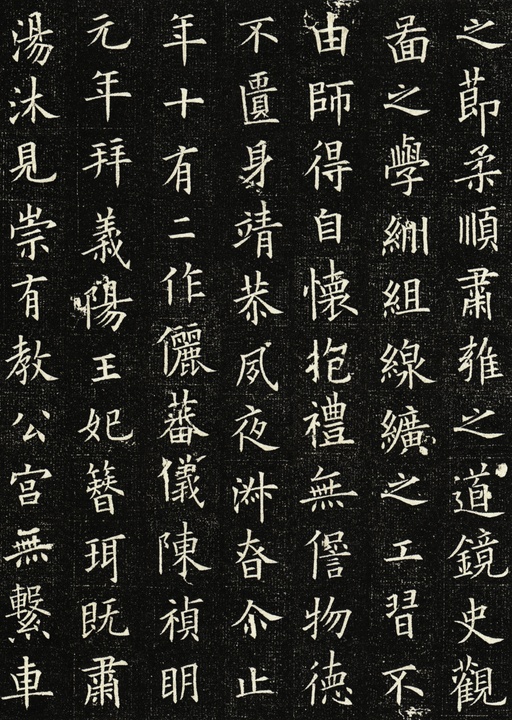 之莭柔順肅雍之道鏡史觀
啚之學紃組線纊之工習不
由師得自懷抱禮無物德
不匱身靖恭夙夜淑昚尒止
年十有二作儷蕃儀陳禎明
元年拜義陽王妃簪珥既肅
湯沐見崇有教公宮無繫車